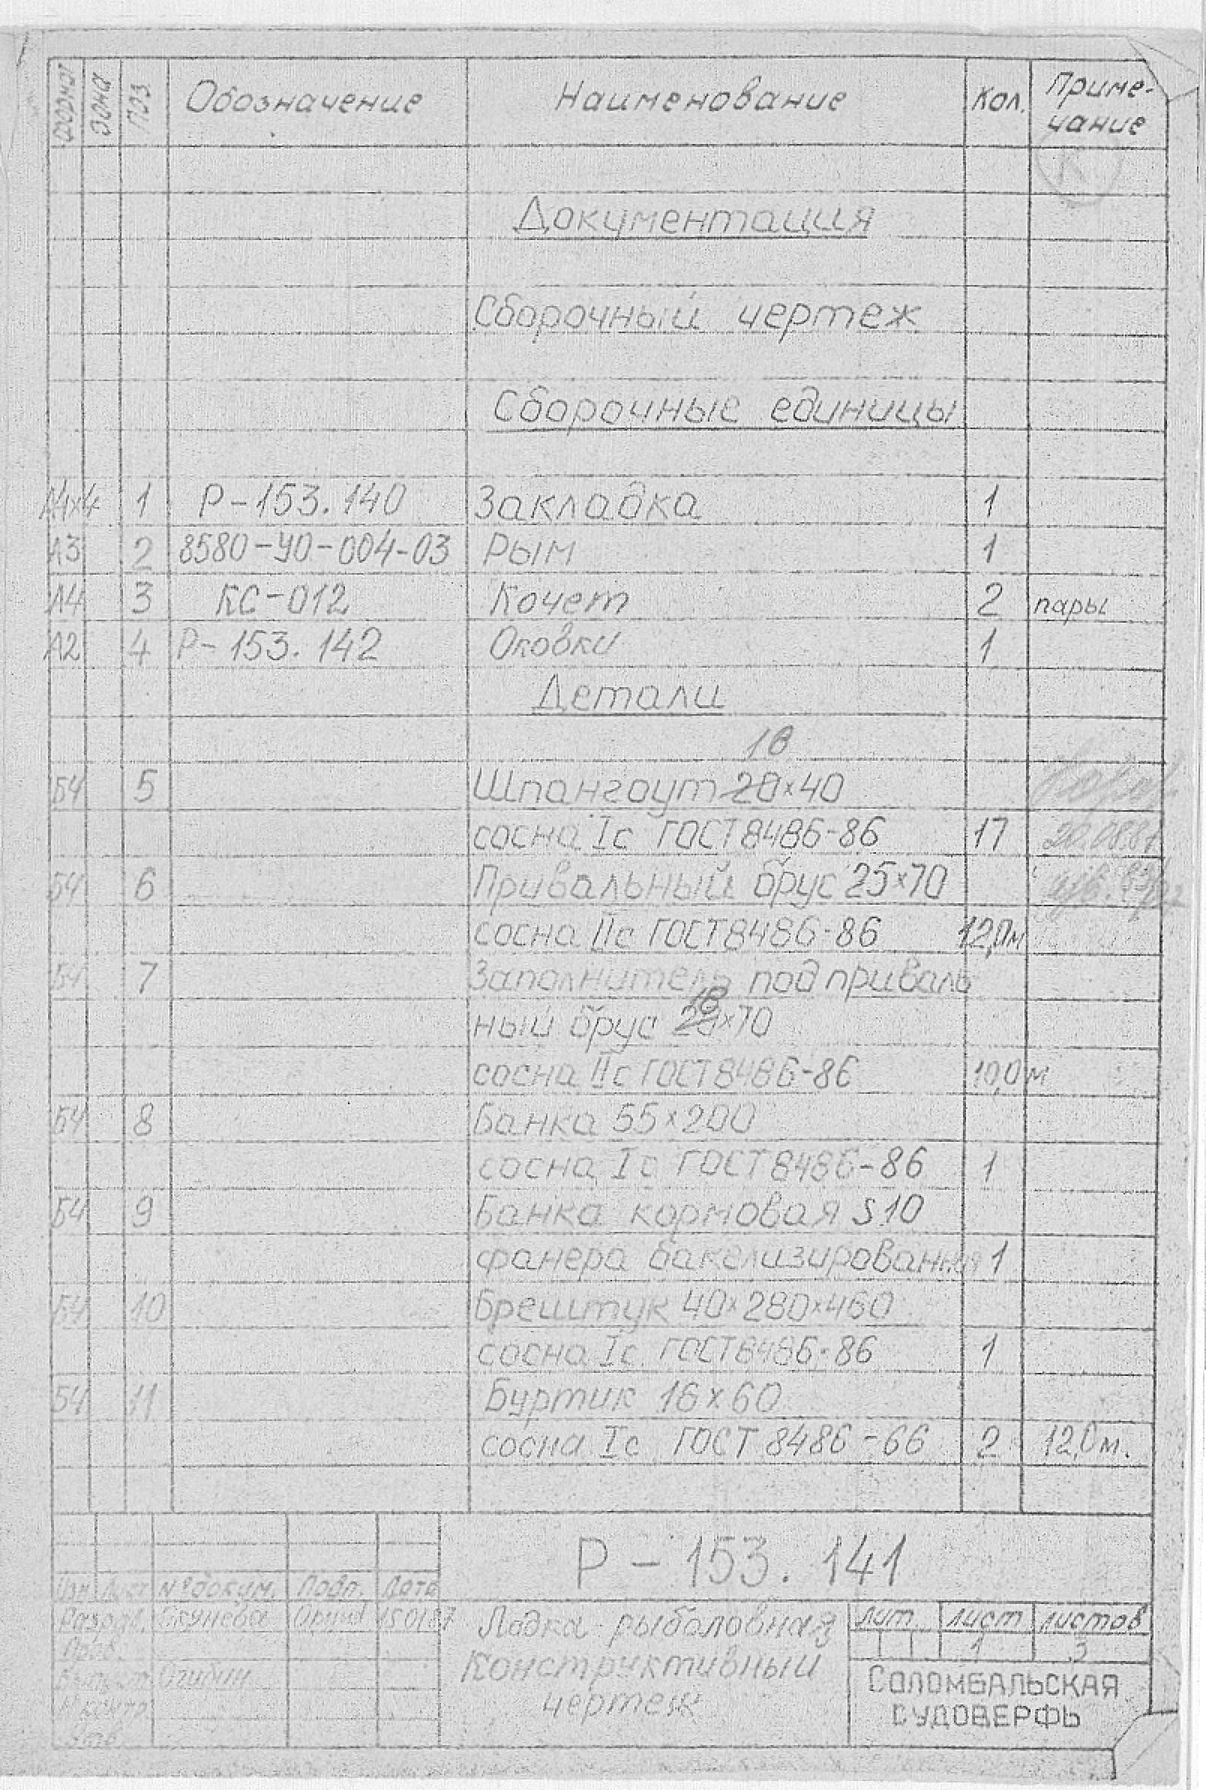 Формат Зона Поз. Обозначение Наименование Кол. Приме-
чание
К
Документация
Сборочный чертеж
Сборочные единицы
А4х4 1 Р-153.140 Закладка 1
А3 2 8580-УО-004-03 Рым 1
А4 3 КС-012 Кочет 2 пары
А2 4 Р-153.142 Оковки 1
Детали
18
Б4 5 Шпангоут 20×40
сосна Iс ГОСТ 8486-86 17 20.08.87
Б4 6 Привальный брус 25×70
сосна IIс ГОСТ 8486-86 12,0м
Б4 7 Заполнитель под приваль
18
ный брус 20×70
сосна IIс ГОСТ 8486-86 10,0м
Б4 8 Банка 55×200
сосна Iс ГОСТ 8486-86 1
Б4 9 Банка кормовая S10
фанера бакелизированная 1
Б4 10 Брештук 40×280×460
сосна Iс ГОСТ 8486-86 1
Б4 11 Буртик 16×60
сосна Iс ГОСТ 8486-66 2 12,0м.
Р-153.141
Изм. Лист № докум. Подп. Дата
Разраб. Окунева 150187
Пров.
Огибин
Н.контр.
Утв.
Лодка рыболовная
Конструктивный
чертеж
Лит. Лист Листов
1 3
СОЛОМБАЛЬСКАЯ
СУДОВЕРФЬ